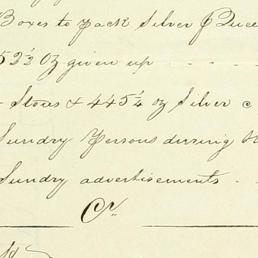 Boxes to pack Silver
52½ oz given up - - - -
Stores & 445¼ oz Silver
Sundry Persons during
Sundry advertisements - -
Cr.